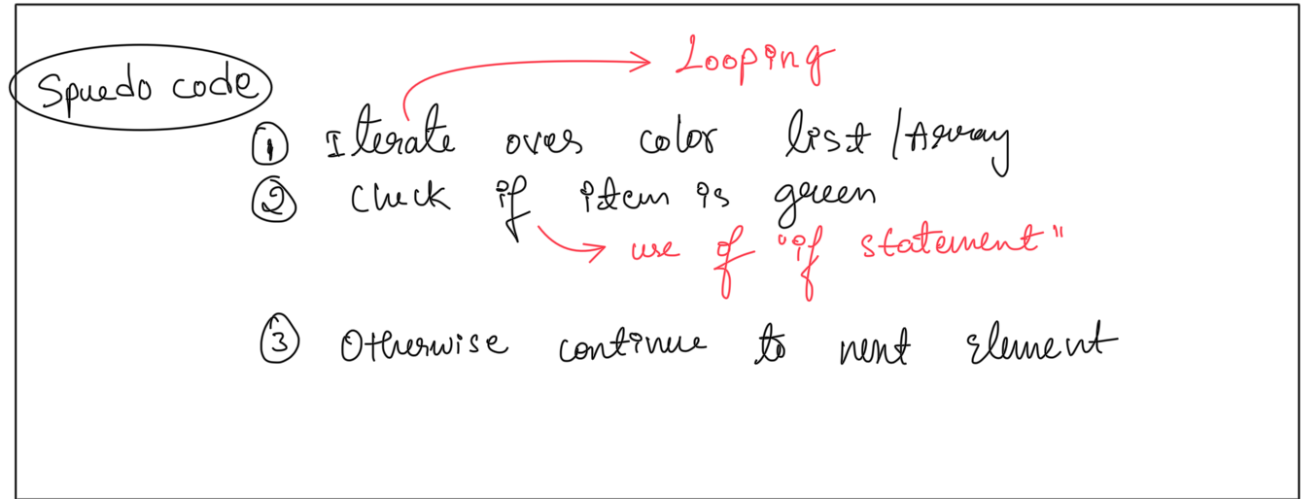 Looping
Spuedo code
① Iterate over color list / Array
② Check if item is green
use of "if statement"
③ Otherwise continue to next element